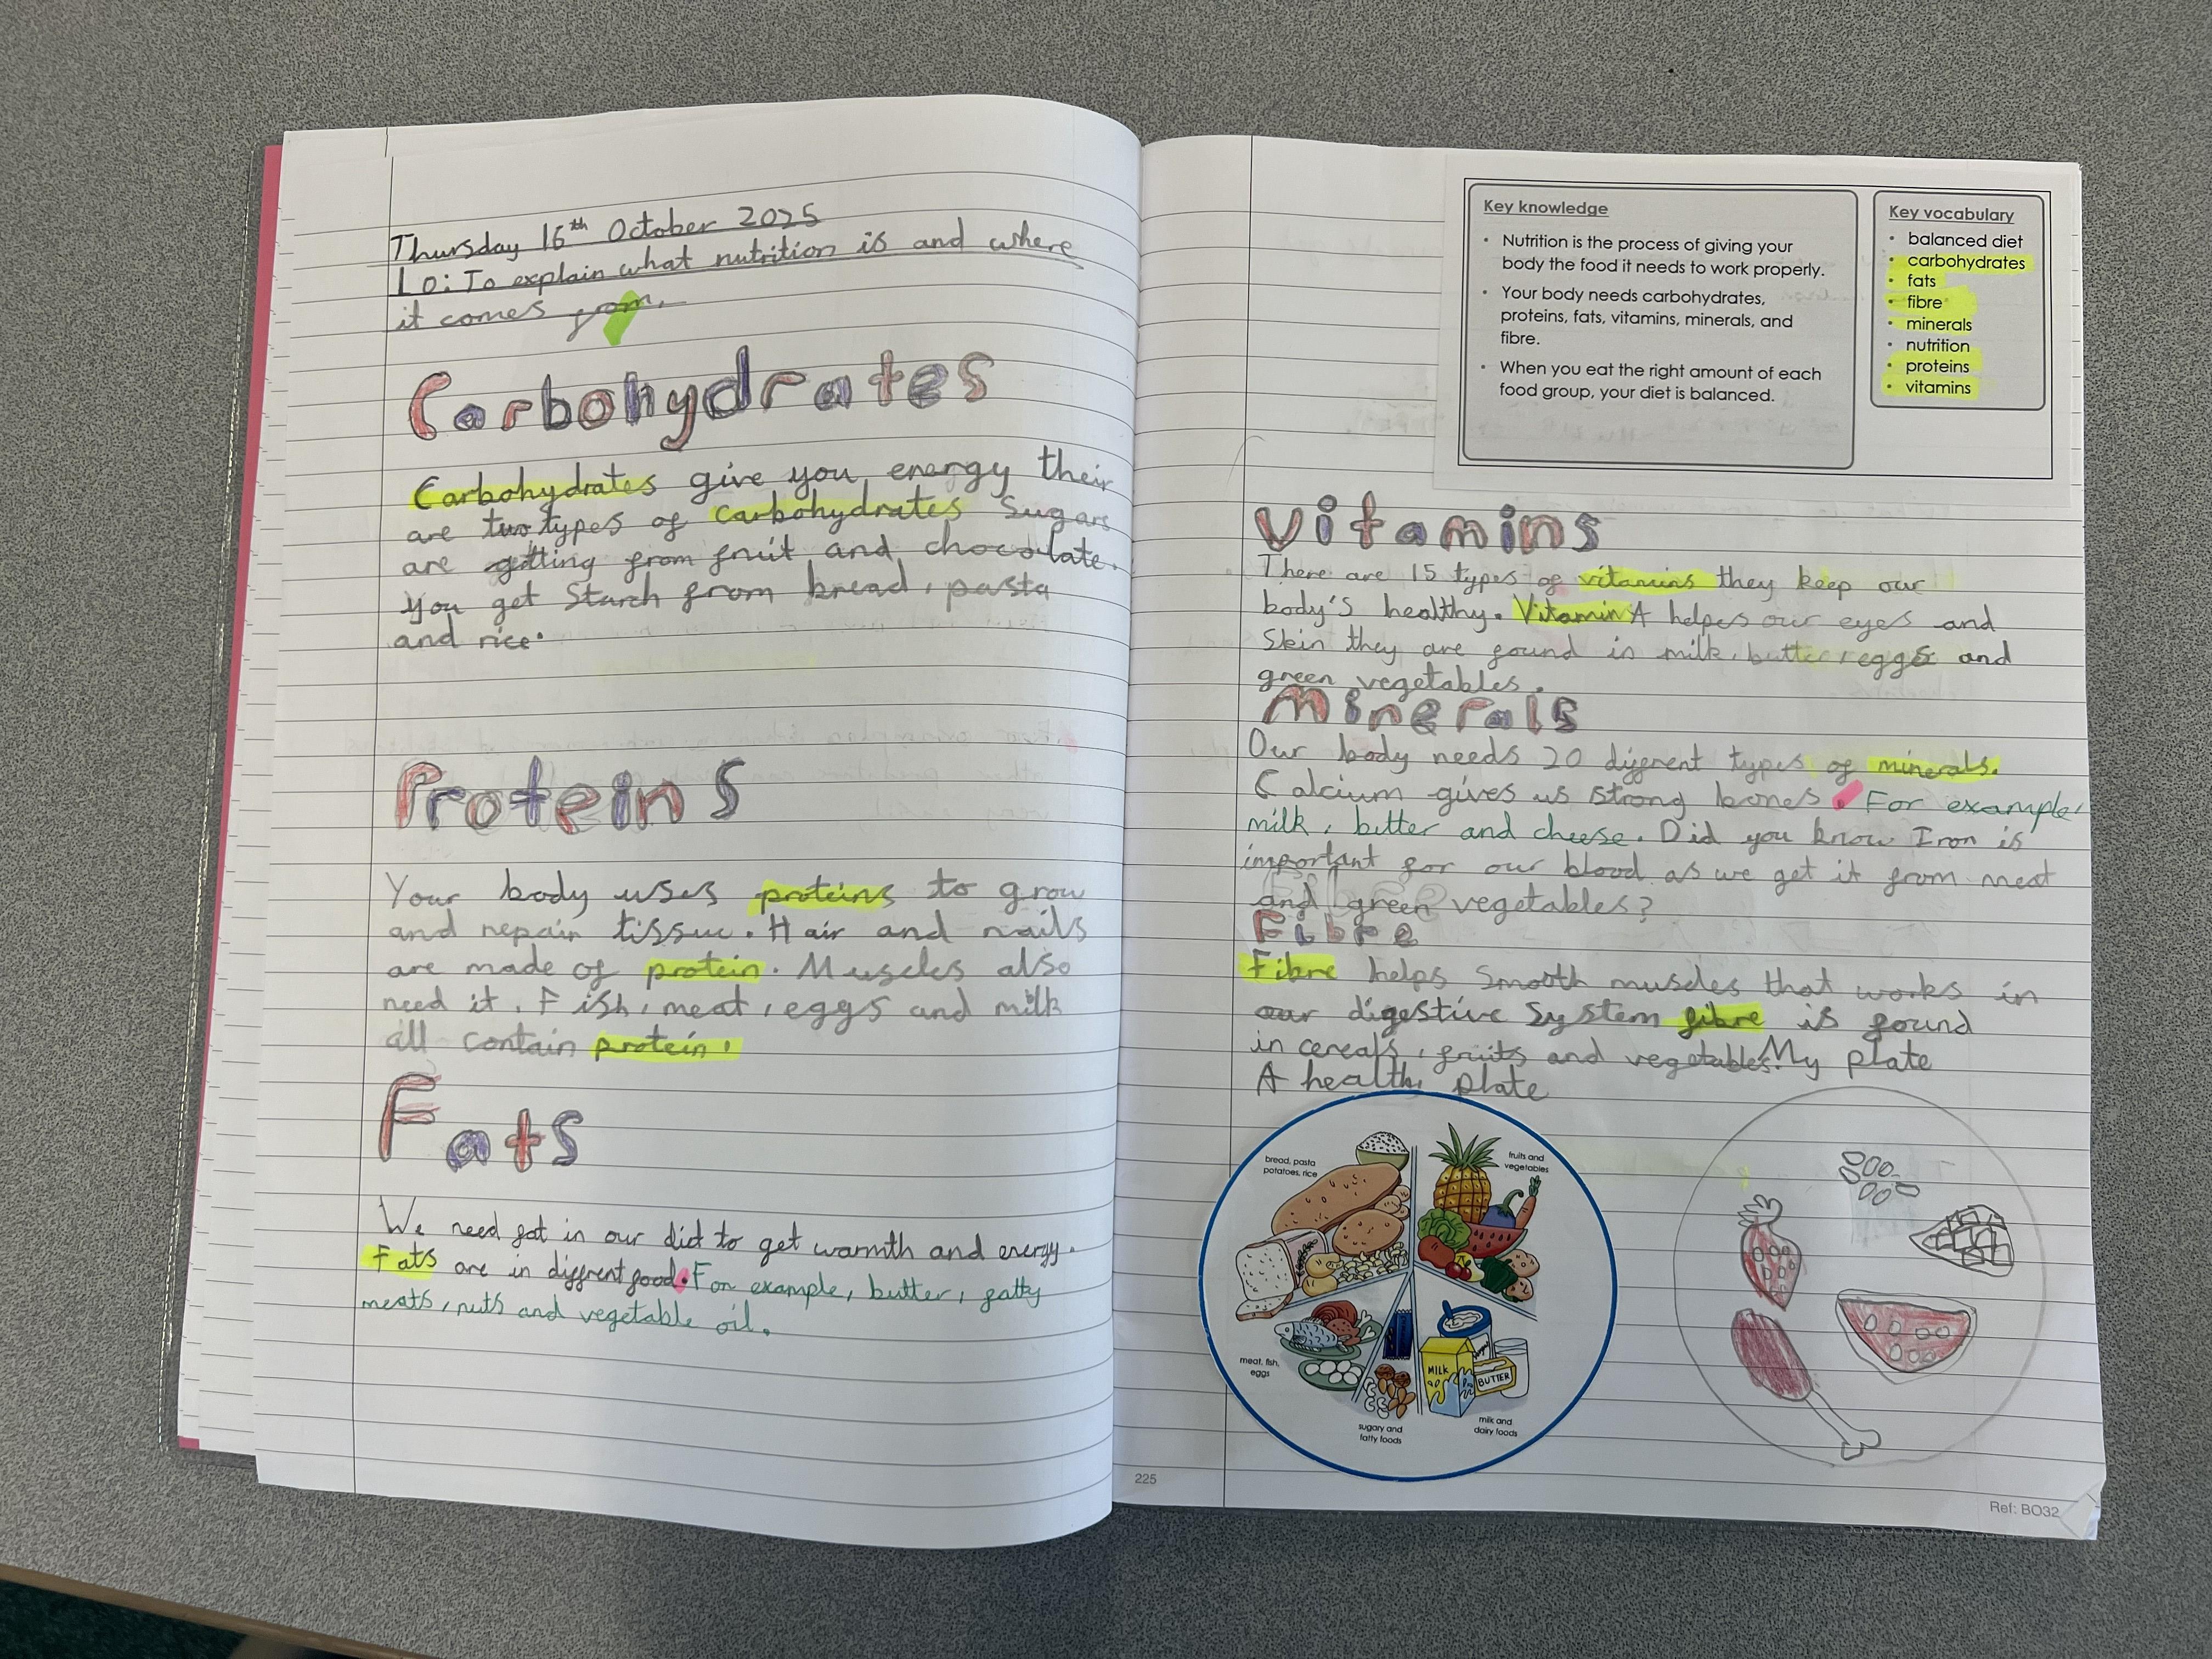 Thursday 16th October 2025
LO: To explain what nutrition is and where
it comes from.
Carbohydrates
Carbohydrates give you energy their
are two types of carbohydrates Sugars
are getting from fruit and chocolate.
You get Starch from bread, pasta
and rice.
Proteins
Your body uses proteins to grow
and repair tissue. Hair and nails
are made of protein. Muscles also
need it. Fish, meat, eggs and milk
all contain protein.
Fats
We need fat in our diet to get warmth and energy.
Fats are in diffrent food. For example, butter, fatty
meats, nuts and vegetable oil.
Key knowledge
• Nutrition is the process of giving your
body the food it needs to work properly.
• Your body needs carbohydrates,
proteins, fats, vitamins, minerals, and
fibre.
• When you eat the right amount of each
food group, your diet is balanced.
Key vocabulary
• balanced diet
• carbohydrates
• fats
• fibre
• minerals
• nutrition
• proteins
• vitamins
Vitamins
There are 15 types of vitamins they keep our
body's healthy. Vitamin A helpes our eyes and
skin they are found in milk, butter, eggs and
green vegetables.
Minerals
Our body needs 20 diffrent types of minerals.
Calcium gives us strong bones. For example,
milk, butter and cheese. Did you know Iron is
important for our blood as we get it from meat
and green vegetables?
Fibre
Fibre helps Smooth muscles that works in
our digestive System fibre is found
in cereals, fruits and vegetables. My plate
A healthy plate
bread, pasta
potatoes, rice
fruits and
vegetables
meat, fish,
eggs
MILK
BUTTER
sugary and
fatty foods
milk and
dairy foods
225
Ref: BO32